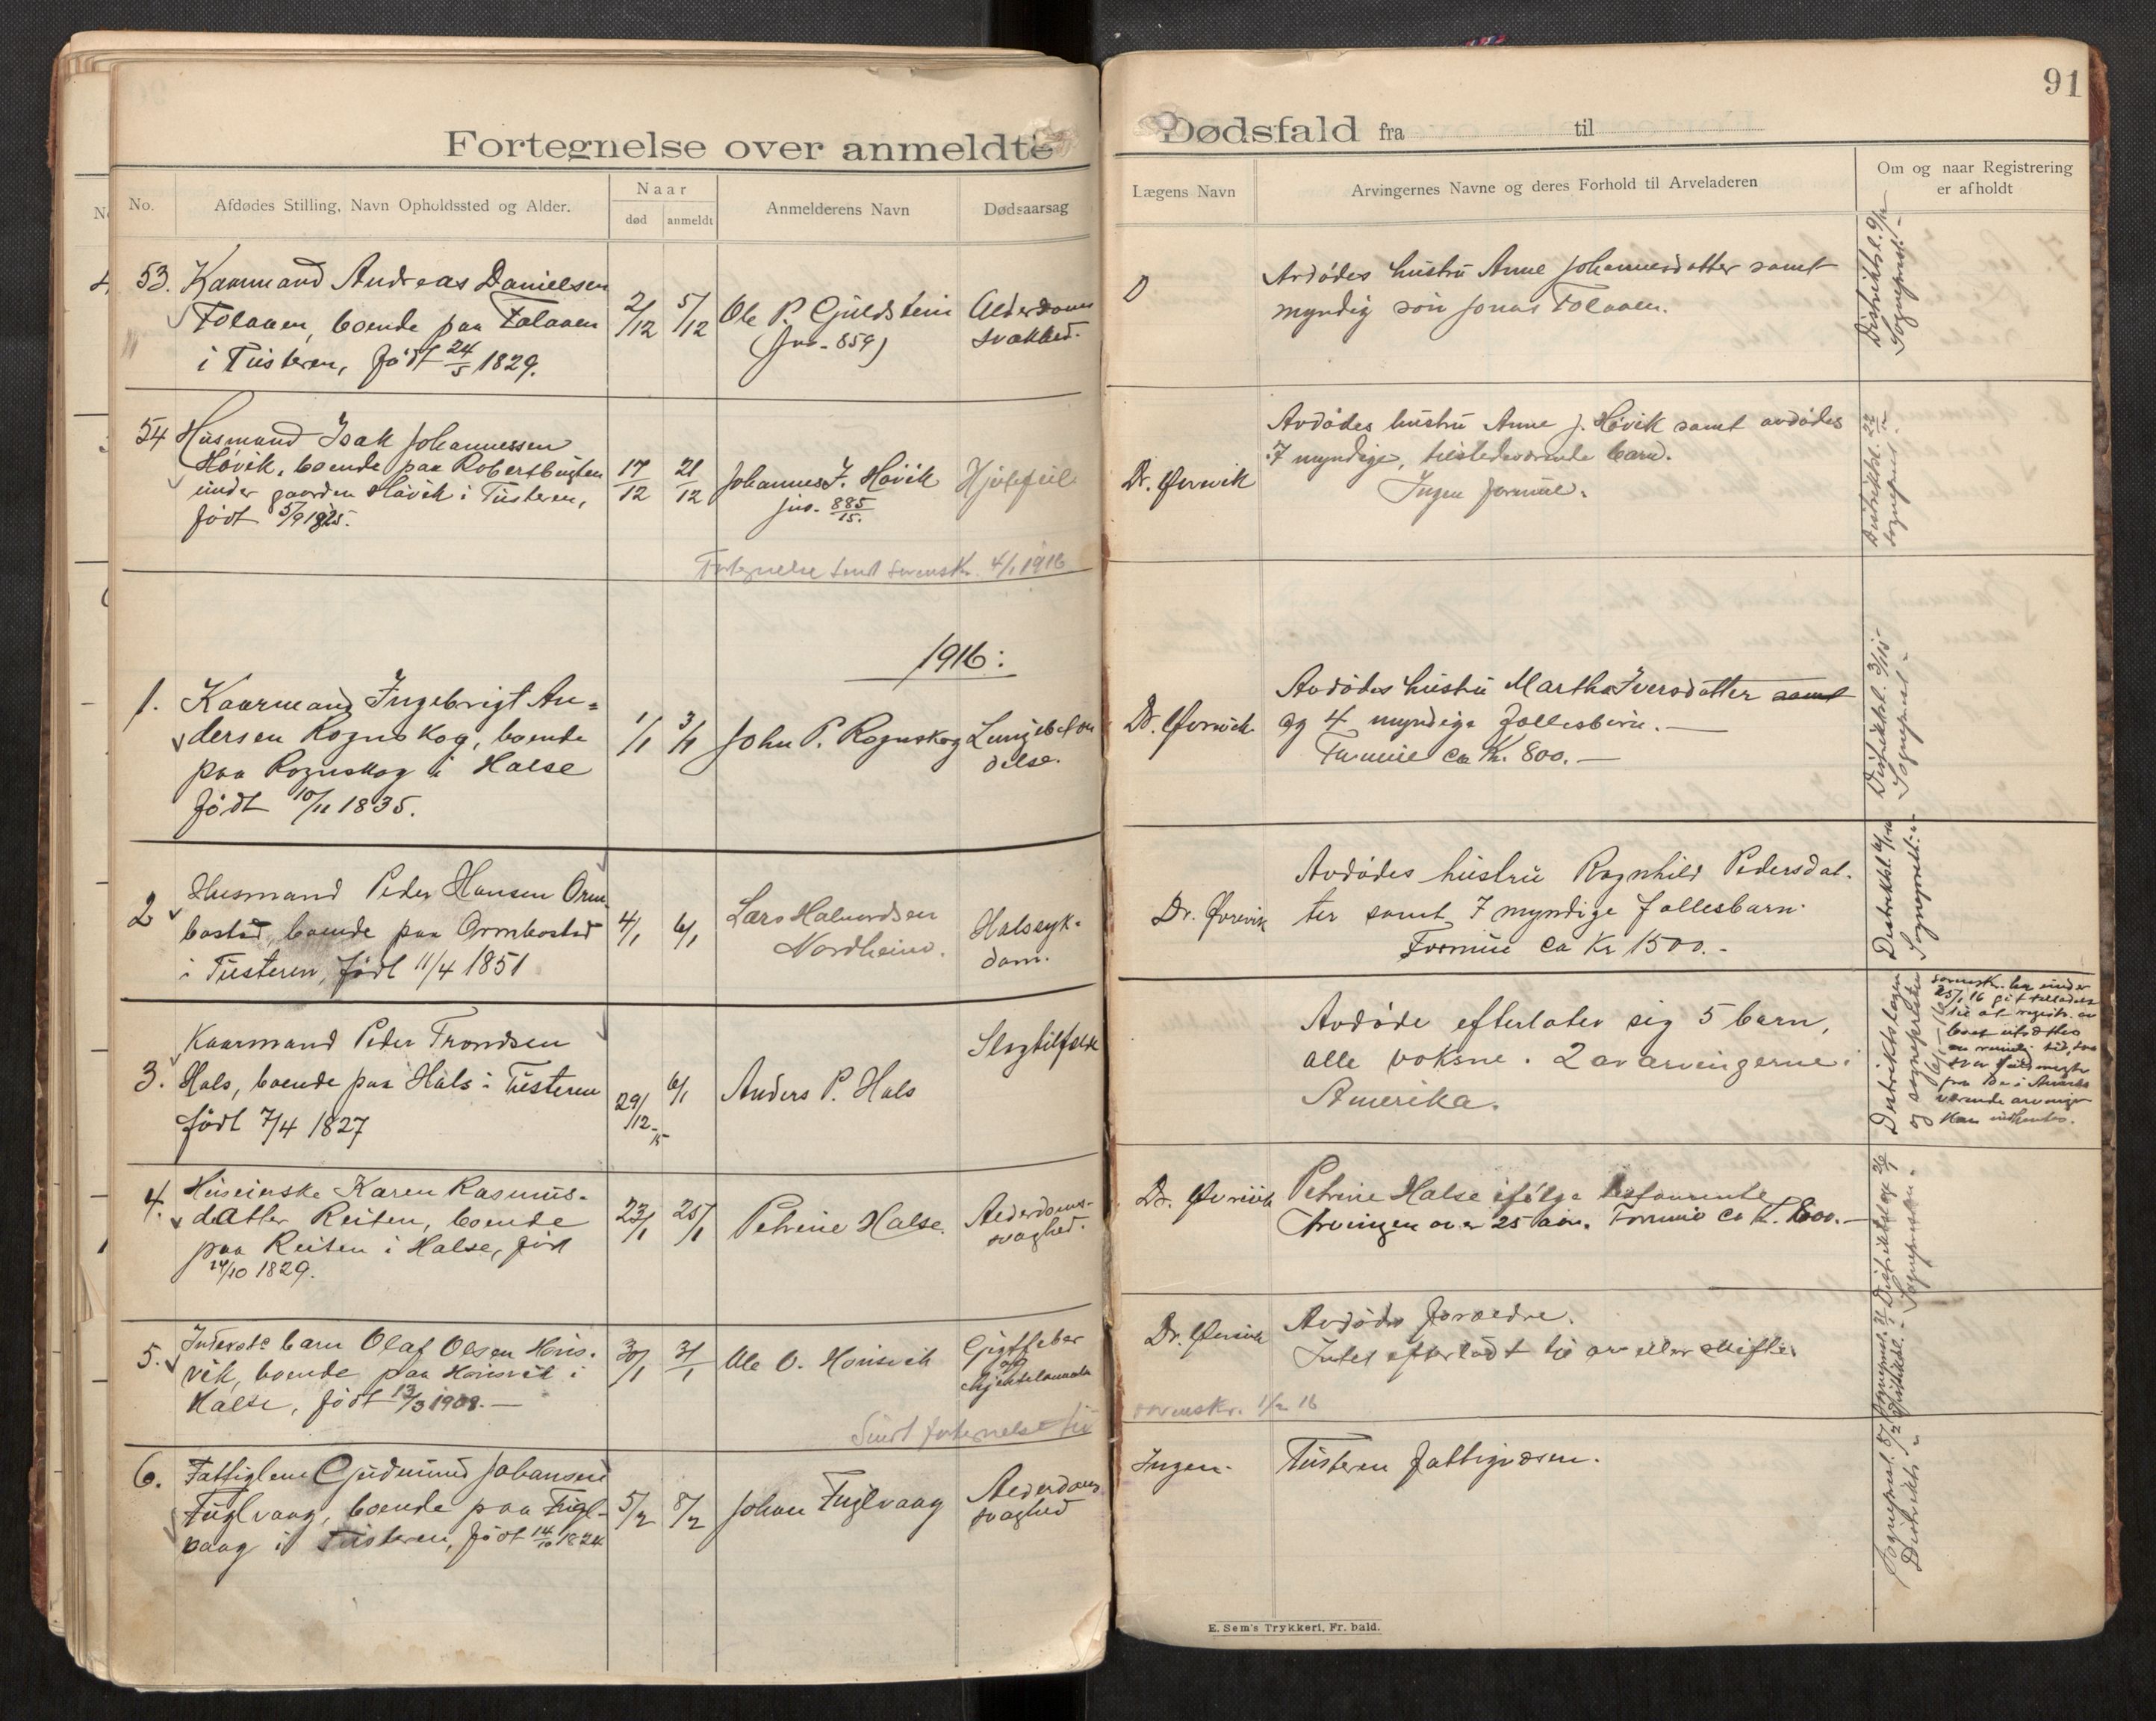 Fortegnelse over anmeldte
No.
Afdødes Stilling, Navn Opholdssted og Alder.
Naar
død
anmeldt
Anmelderens Navn
Dødsaarsag
53. Kaarmand Andreas Danielsen
Folaaen, boende paa Folaaen
i Tusteren, født 24/5 1829.
2/12
5/12
Ole P. Guldstein
(Jno. 859)
Alderdoms
svakhed.
54 Husmand Isak Johannessen
Høvik, boende paa Robertbugten
under gaarden Høvik i Tusteren,
født 5/9 1825.
17/12
21/12
Johannes J. Høvik
jno. 885/15.
Hjertefeil
Fortegnelse sendt Sorensk. 4/1 1916
1916:
1. Kaarmand Ingebrigt An=
dersen Rognskog, boende
paa Rognskog i Halse
født 10/11 1835.
1/1
3/1
John P. Rognskog
Lungebetæn
delse.
2 Husmand Peder Hansen Orm-
bostad, boende paa Ormbostad
i Tusteren, født 11/4 1851
4/1
6/1
Lars Halvordsen
Nordheim.
Halssyk-
dom.
3. Kaarmand Peder Trondsen
Hals, boende paa Hals i Tusteren
født 7/4 1827
29/12-15
6/1
Anders P. Hals
Slagtilfælde
4. Huseierske Karen Rasmus-
datter Reiten, boende
paa Reiten i Halse, født
24/10 1829.
23/1
25/1
Petrine Halse.
Alderdoms-
svaghed.
5. barn Olaf Olsen Hons-
vik, boende paa Honsvik i
Halse, født 13/3 1908.
30/1
31/1
Ole O. Honsvik
Gigtfeber
og
Sendt fortegnelse til
6. Fattiglem Gudmund Johansen
Fuglvaag, boende paa Fugl-
vaag i Tusteren, født 14/10 1824
5/2
8/2
Johan Fuglvaag
Alderdoms
svaghed
91
Dødsfald fra til
Lægens Navn
Arvingernes Navne og deres Forhold til Arveladeren
Om og naar Registrering
er afholdt
0
Avdødes hustru Anne Johannesdatter samt
myndig søn Jonas Folaaen.
Distriktsl. 9/12
Sogneprest -
Dr. Ørevik
Avdødes hustru Anne J. Høvik samt avdødes
7 myndige, tilstedeværende barn.
Ingen formue.
Distriktsl. 22/12
Sogneprest -
Dr. Ørevik
Avdødes hustru Martha Iversdatter samt
og 4 myndige fællesbørn.
Formue ca Kr. 800.
Distriktsl. 3/1 15
Sogneprest -
Dr. Ørevik
Avdødes hustru Ragnhild Pedersdat-
ter samt 7 myndige fællesbarn.
Formue ca Kr 1500.-
Distriktsl. 6/1-16
Sogneprest -
Avdøde efterlater sig 5 barn,
alle voksne. 2 av arvingerne i
Amerika.
Distriktslægen
og sognepresten
6/1-16
Sorensk. har under
25/1 16 git tilladelse
til at registr. av
boet utsættes
en rimelig tid,
fuldmagt
fra de i Amerika
værende arvinger
kan indhentes.
Dr. Ørevik
Petrine Halse ifølge testamente
Arvingen over 25 aar. Formue ca Kr. 800.-
Distriktslæge 26/1
Sognepresten -
Dr. Ørevik
Avdødes forældre.
Intet efterladt til arv eller skifte.
Sogneprest. 31/1
Distriktsl. -
sorenskr. 1/2 16
Ingen.
Tusteren fattigvæsen.
Sogneprest. 8/2
Distriktsl. -
E. Sem's Trykkeri, Fr. hald.